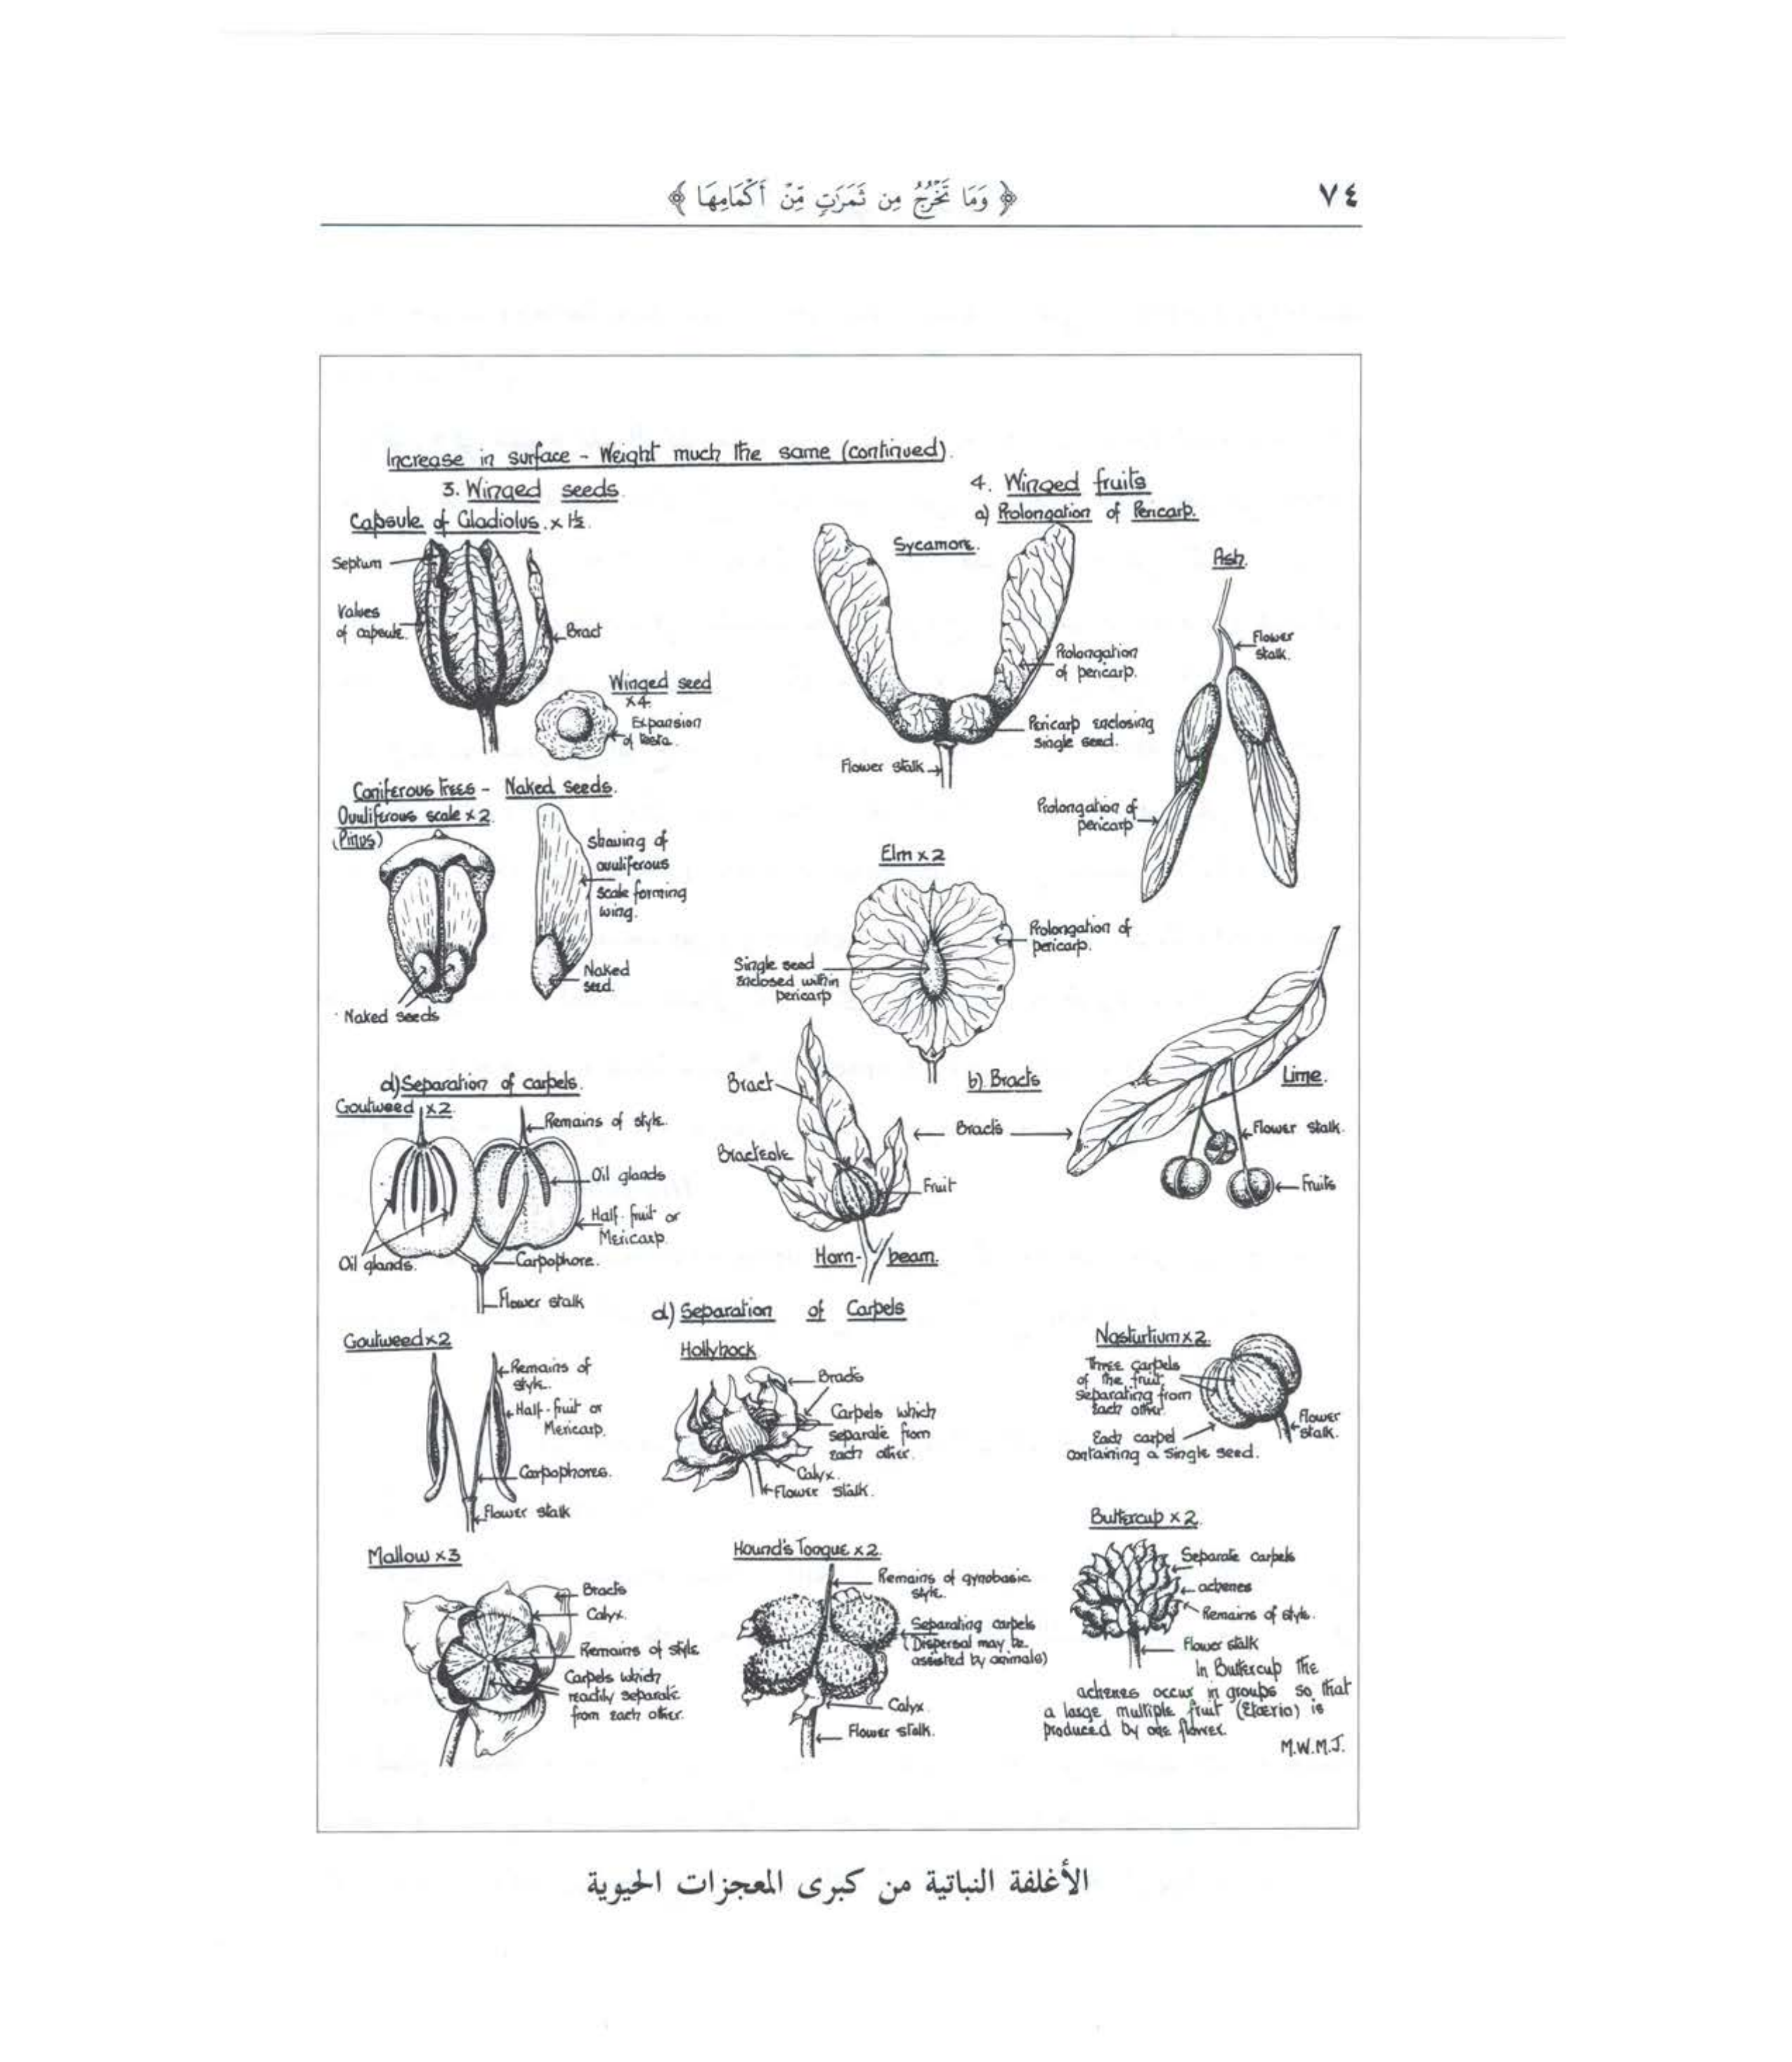 ﴿ وَمَا تَخْرُجُ مِن ثَمَرَٰتٍ مِّنْ أَكْمَامِهَا ﴾
٧٤
Increase in surface - Weight much the same (continued).
3. Winged seeds.
Capsule of Gladiolus. x 1½.
Septum
Valves
of capsule.
Bract
Winged seed
x4.
Expansion
of testa.
4. Winged fruits
a) Prolongation of Pericarp.
Sycamore.
Prolongation
of pericarp.
Pericarp enclosing
single seed.
Flower stalk
Ash.
Flower
stalk.
Prolongation of
pericarp
Coniferous trees - Naked seeds.
Ovuliferous scale x 2.
(Pinus)
Naked seeds
Shaving of
ovuliferous
scale forming
wing.
Naked
seed.
Elm x 2
Prolongation of
pericarp.
Single seed
enclosed within
pericarp
b) Bracts
Bract
Bracteole
Fruit
Horn-beam.
Bracts
Lime.
Flower stalk.
Fruits
d) Separation of carpels.
Goutweed x2.
Remains of style.
Oil glands
Half-fruit or
Mericarp.
Oil glands.
Carpophore.
Flower stalk
d) Separation of Carpels
Goutweed x2
Remains of
style.
Half-fruit or
Mericarp.
Carpophores.
Flower stalk
Hollyhock
Bracts
Carpels which
separate from
each other.
Calyx.
Flower stalk.
Nasturtium x 2.
Three carpels
of the fruit,
separating from
each other.
Each carpel
containing a single seed.
Flower
stalk.
Mallow x3
Bracts
Calyx.
Remains of style
Carpels which
readily separate
from each other.
Hound's Tongue x 2.
Remains of gynobasic
style.
Separating carpels
(Dispersal may be
assisted by animals)
Calyx
Flower stalk.
Buttercup x 2.
Separate carpels
achenes
Remains of style.
Flower stalk
In Buttercup the
achenes occur in groups so that
a large multiple fruit (Etaerio) is
produced by one flower.
M.W.M.J.
الأغلفة النباتية من كبرى المعجزات الحيوية